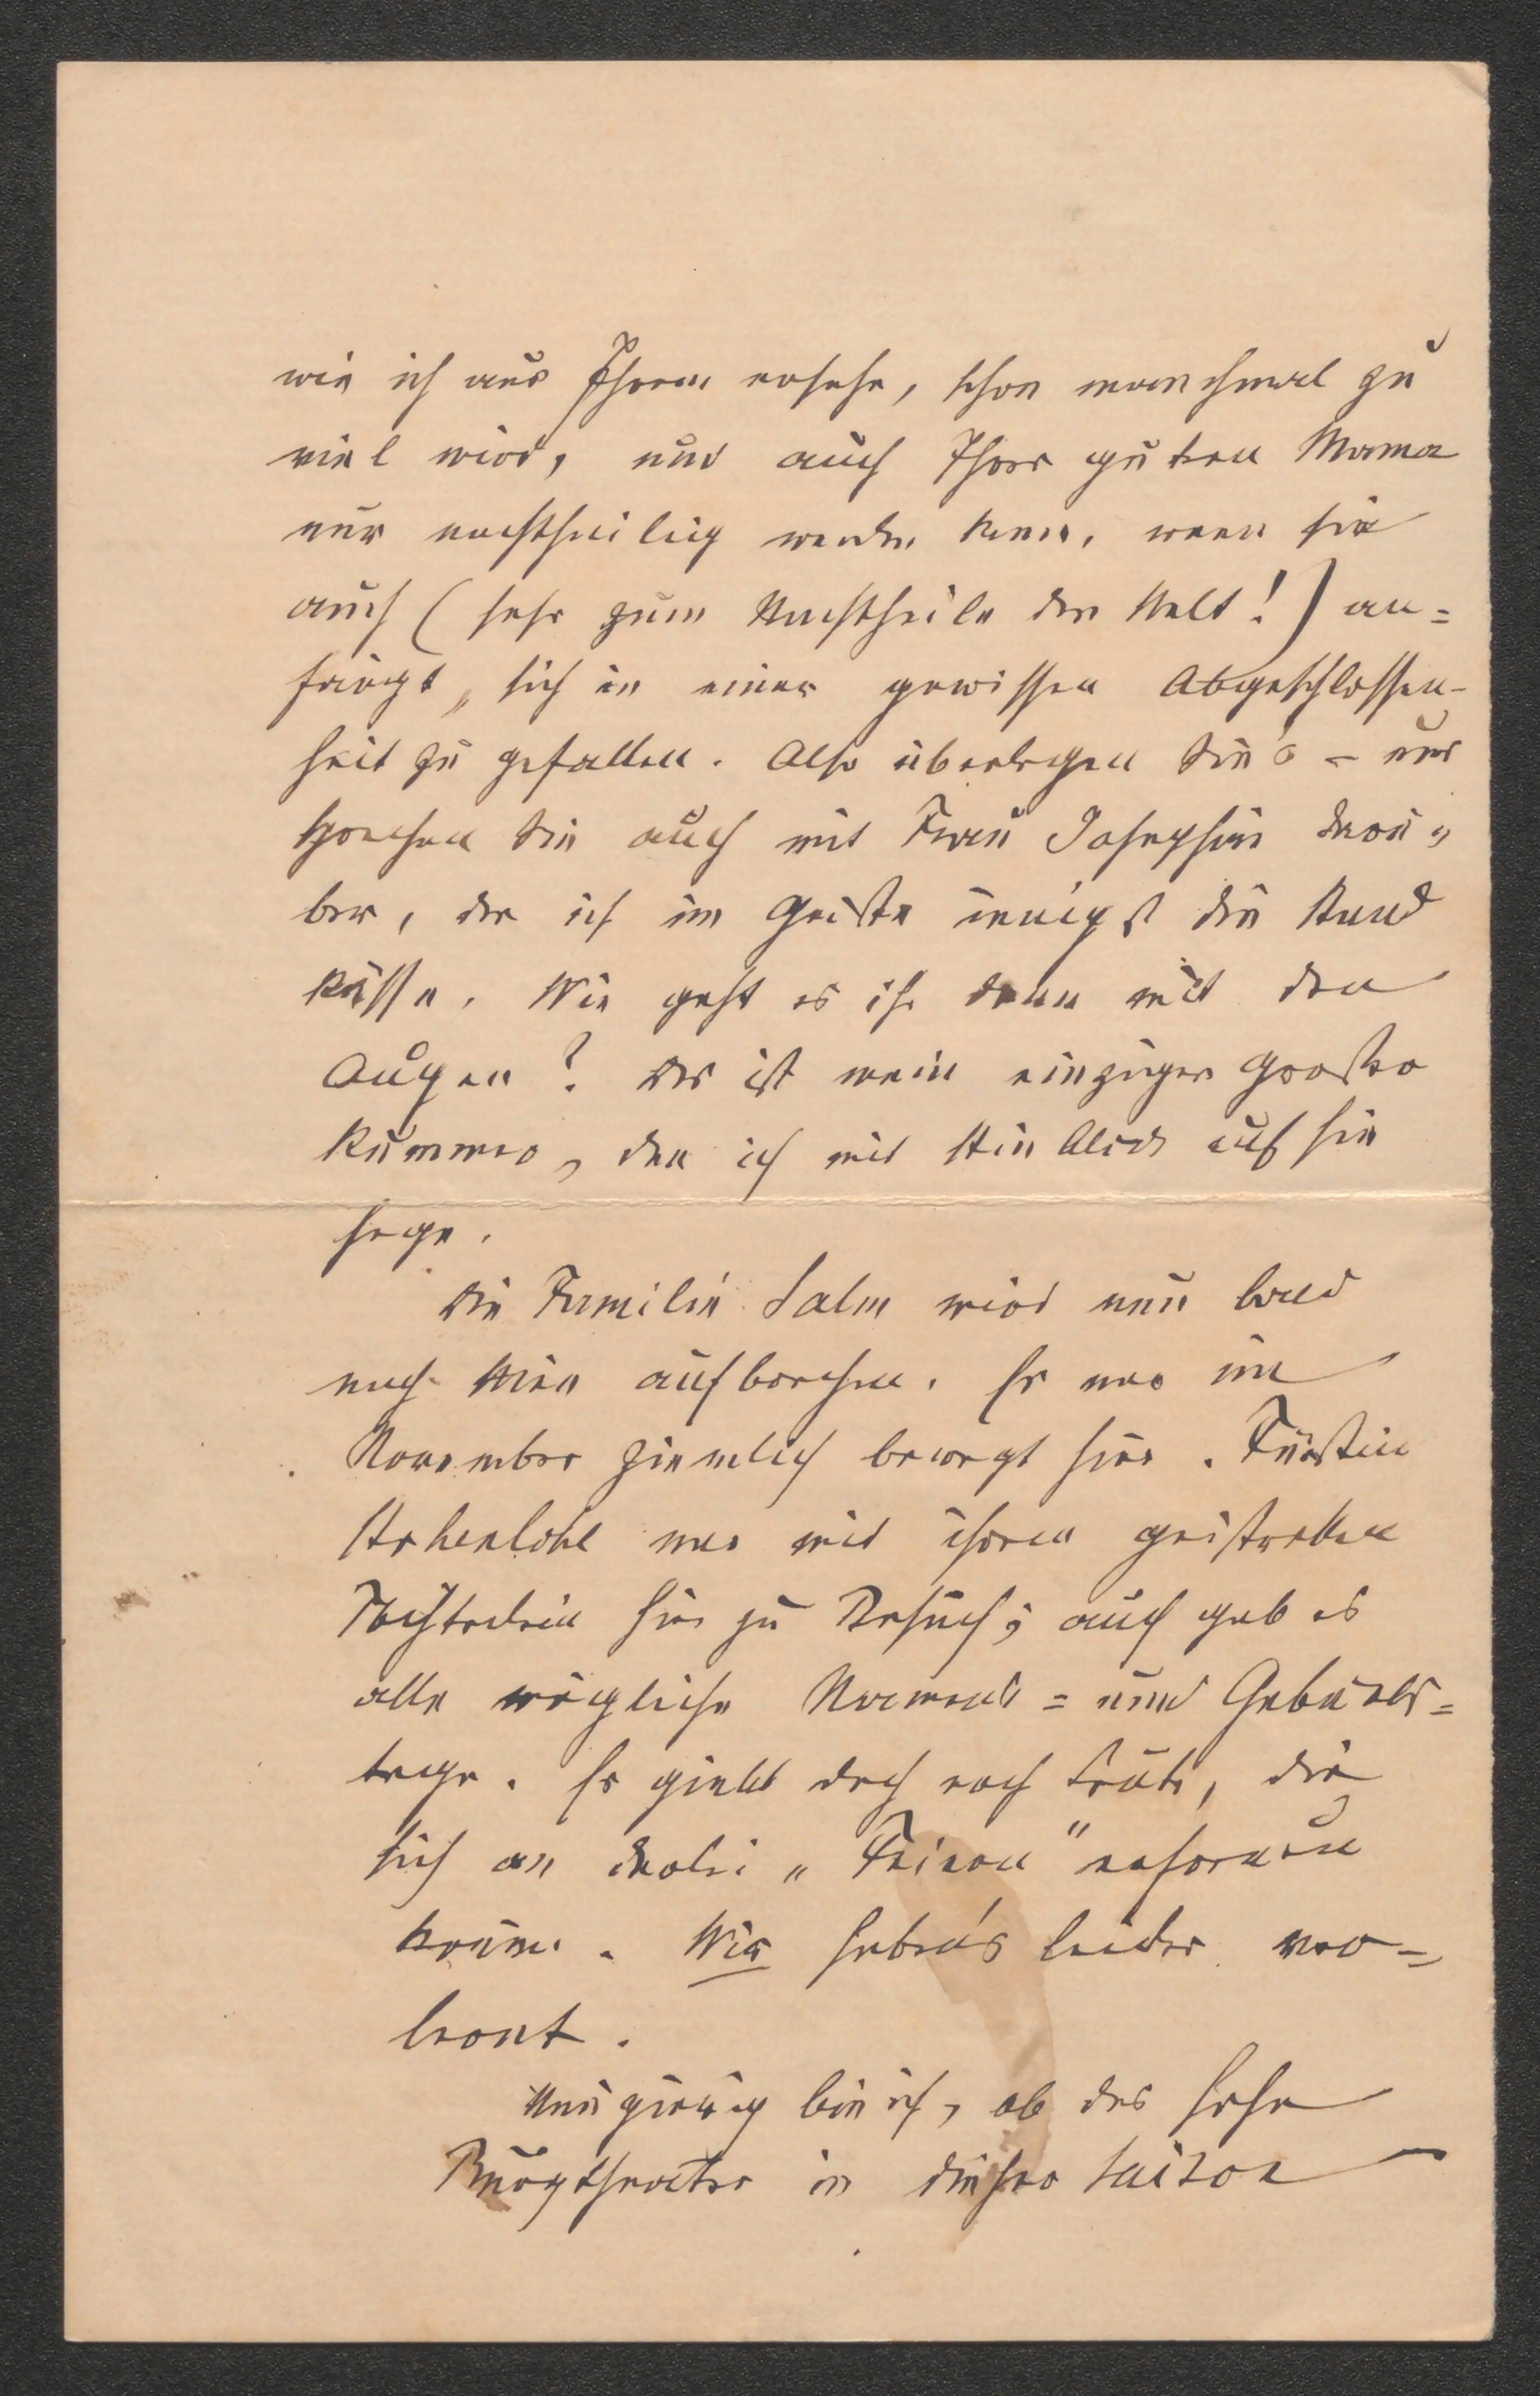 wie ich aus Ihrem ersehe, schon manchmal zu
viel wird, und auch Ihrer guten Mama
nur nachtheilig werden kann, wenn sie
auch (sehr zum Nachtheile der Welt!) an=
fängt, sich in einer gewissen Abgeschlossen-
heit zu gefallen. Also überlegen Sie's – und
sprechen Sie auch mit Frau Josephine darü-
ber, der ich im Geiste innigst die Hand
küsse. Wie geht es ihr denn mit den
Augen? Das ist mein einziger großer
Kummer, den ich mit Hinblick auf sie
hege.
Die Familie Salm wird nun bald
nach Wien aufbrechen. Es war im
November ziemlich bewegt hier. Fürstin
Hohenlohe war mit ihren
Töchterlein hier zu Besuch; auch gab es
alle mögliche Namens= und Geburts=
tage. Es giebt doch noch Leute, die
sich an derlei „Feiern" erfreuen
können. Wir haben's leider ver=
lernt.
Neugierig bin ich, ob das hohe
Burgtheater in dieser Saison